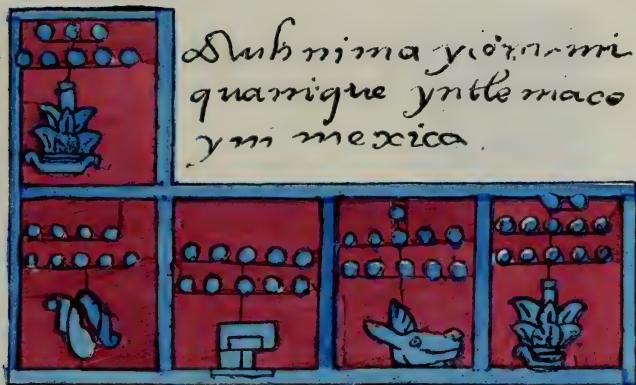 Auh nima mi
quanique yntle maco
yni mexica.